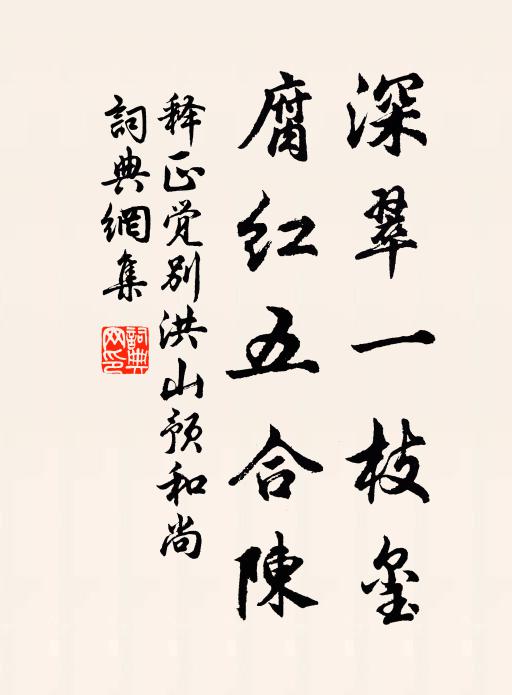 深翠一枝玺
腐红五合陳
释正觉别洪山预和尚
詞典網集
詞典網印